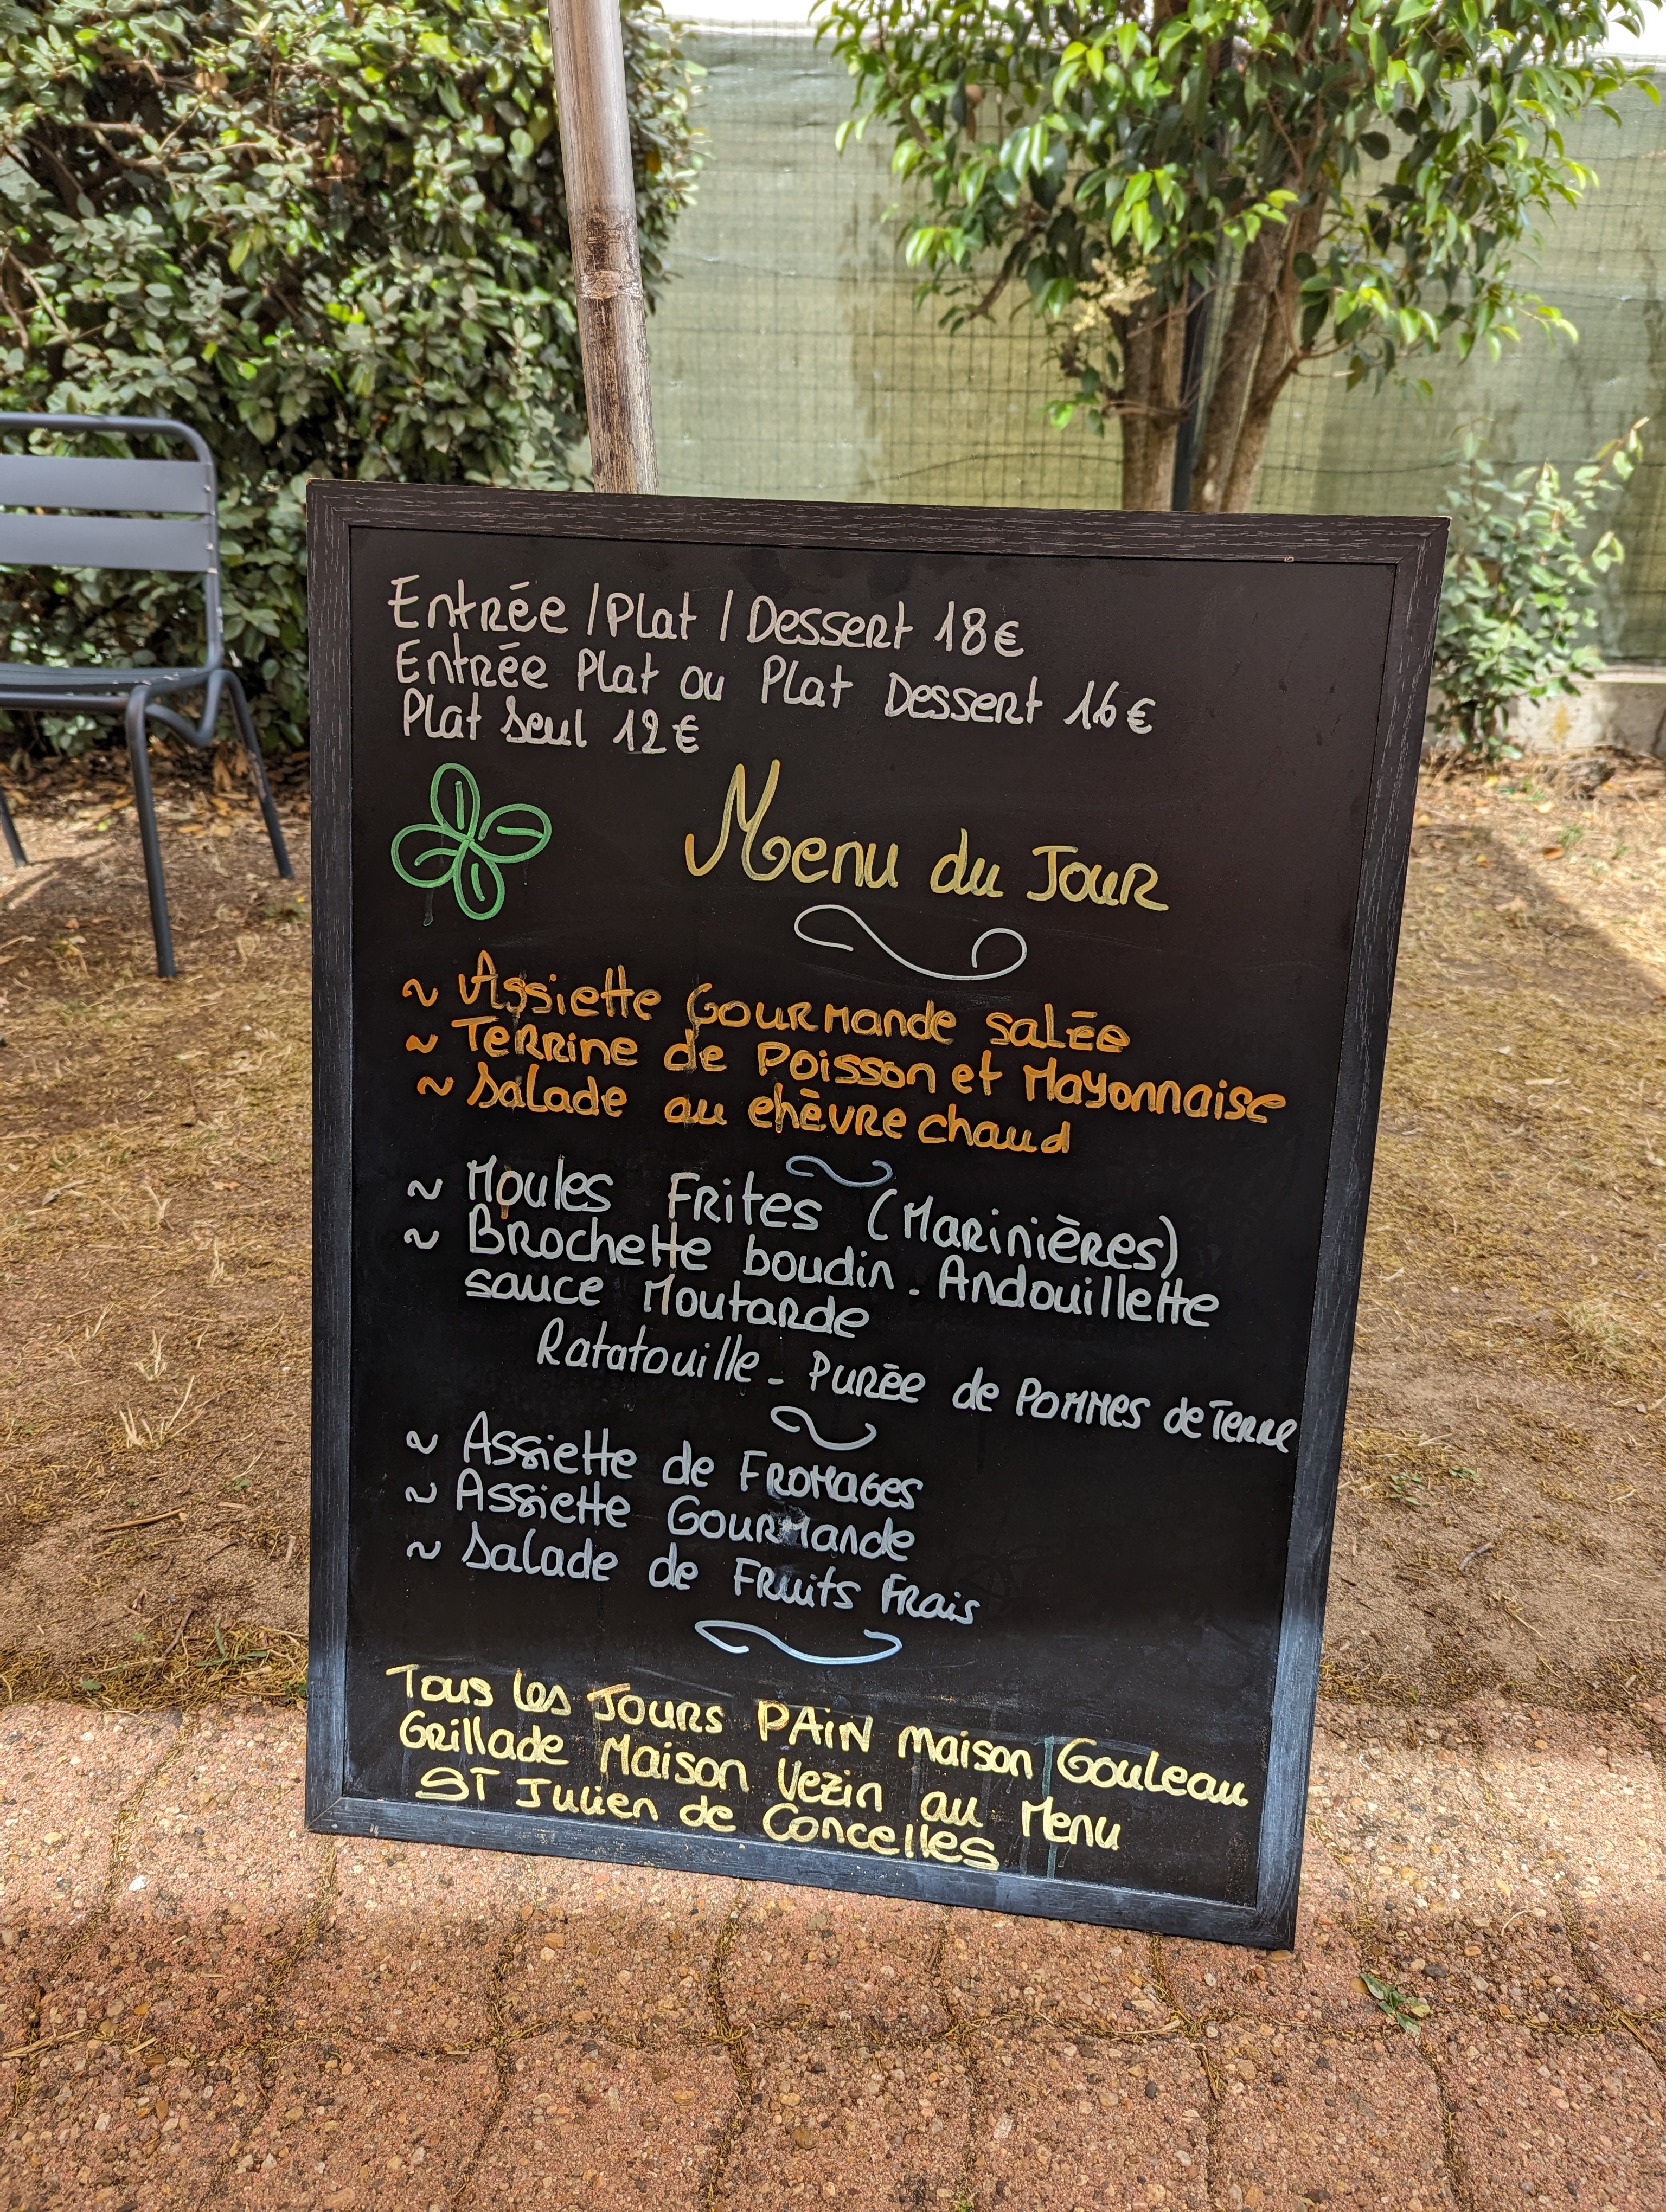 Entrée / Plat / Dessert 18€
Entrée Plat ou Plat Dessert 16€
Plat Seul 12€
Menu du Jour
~ Assiette Gourmande salée
~ Terrine de Poisson et Mayonnaise
~ Salade au chèvre chaud
~ Moules Frites (Marinières)
~ Brochette boudin - Andouillette
sauce Moutarde
Ratatouille - Purée de Pommes de Terre
~ Assiette de Fromages
~ Assiette Gourmande
~ Salade de Fruits Frais
Tous les Jours PAIN Maison Gouleau
Grillade Maison Vezin au Menu
ST Julien de Concelles